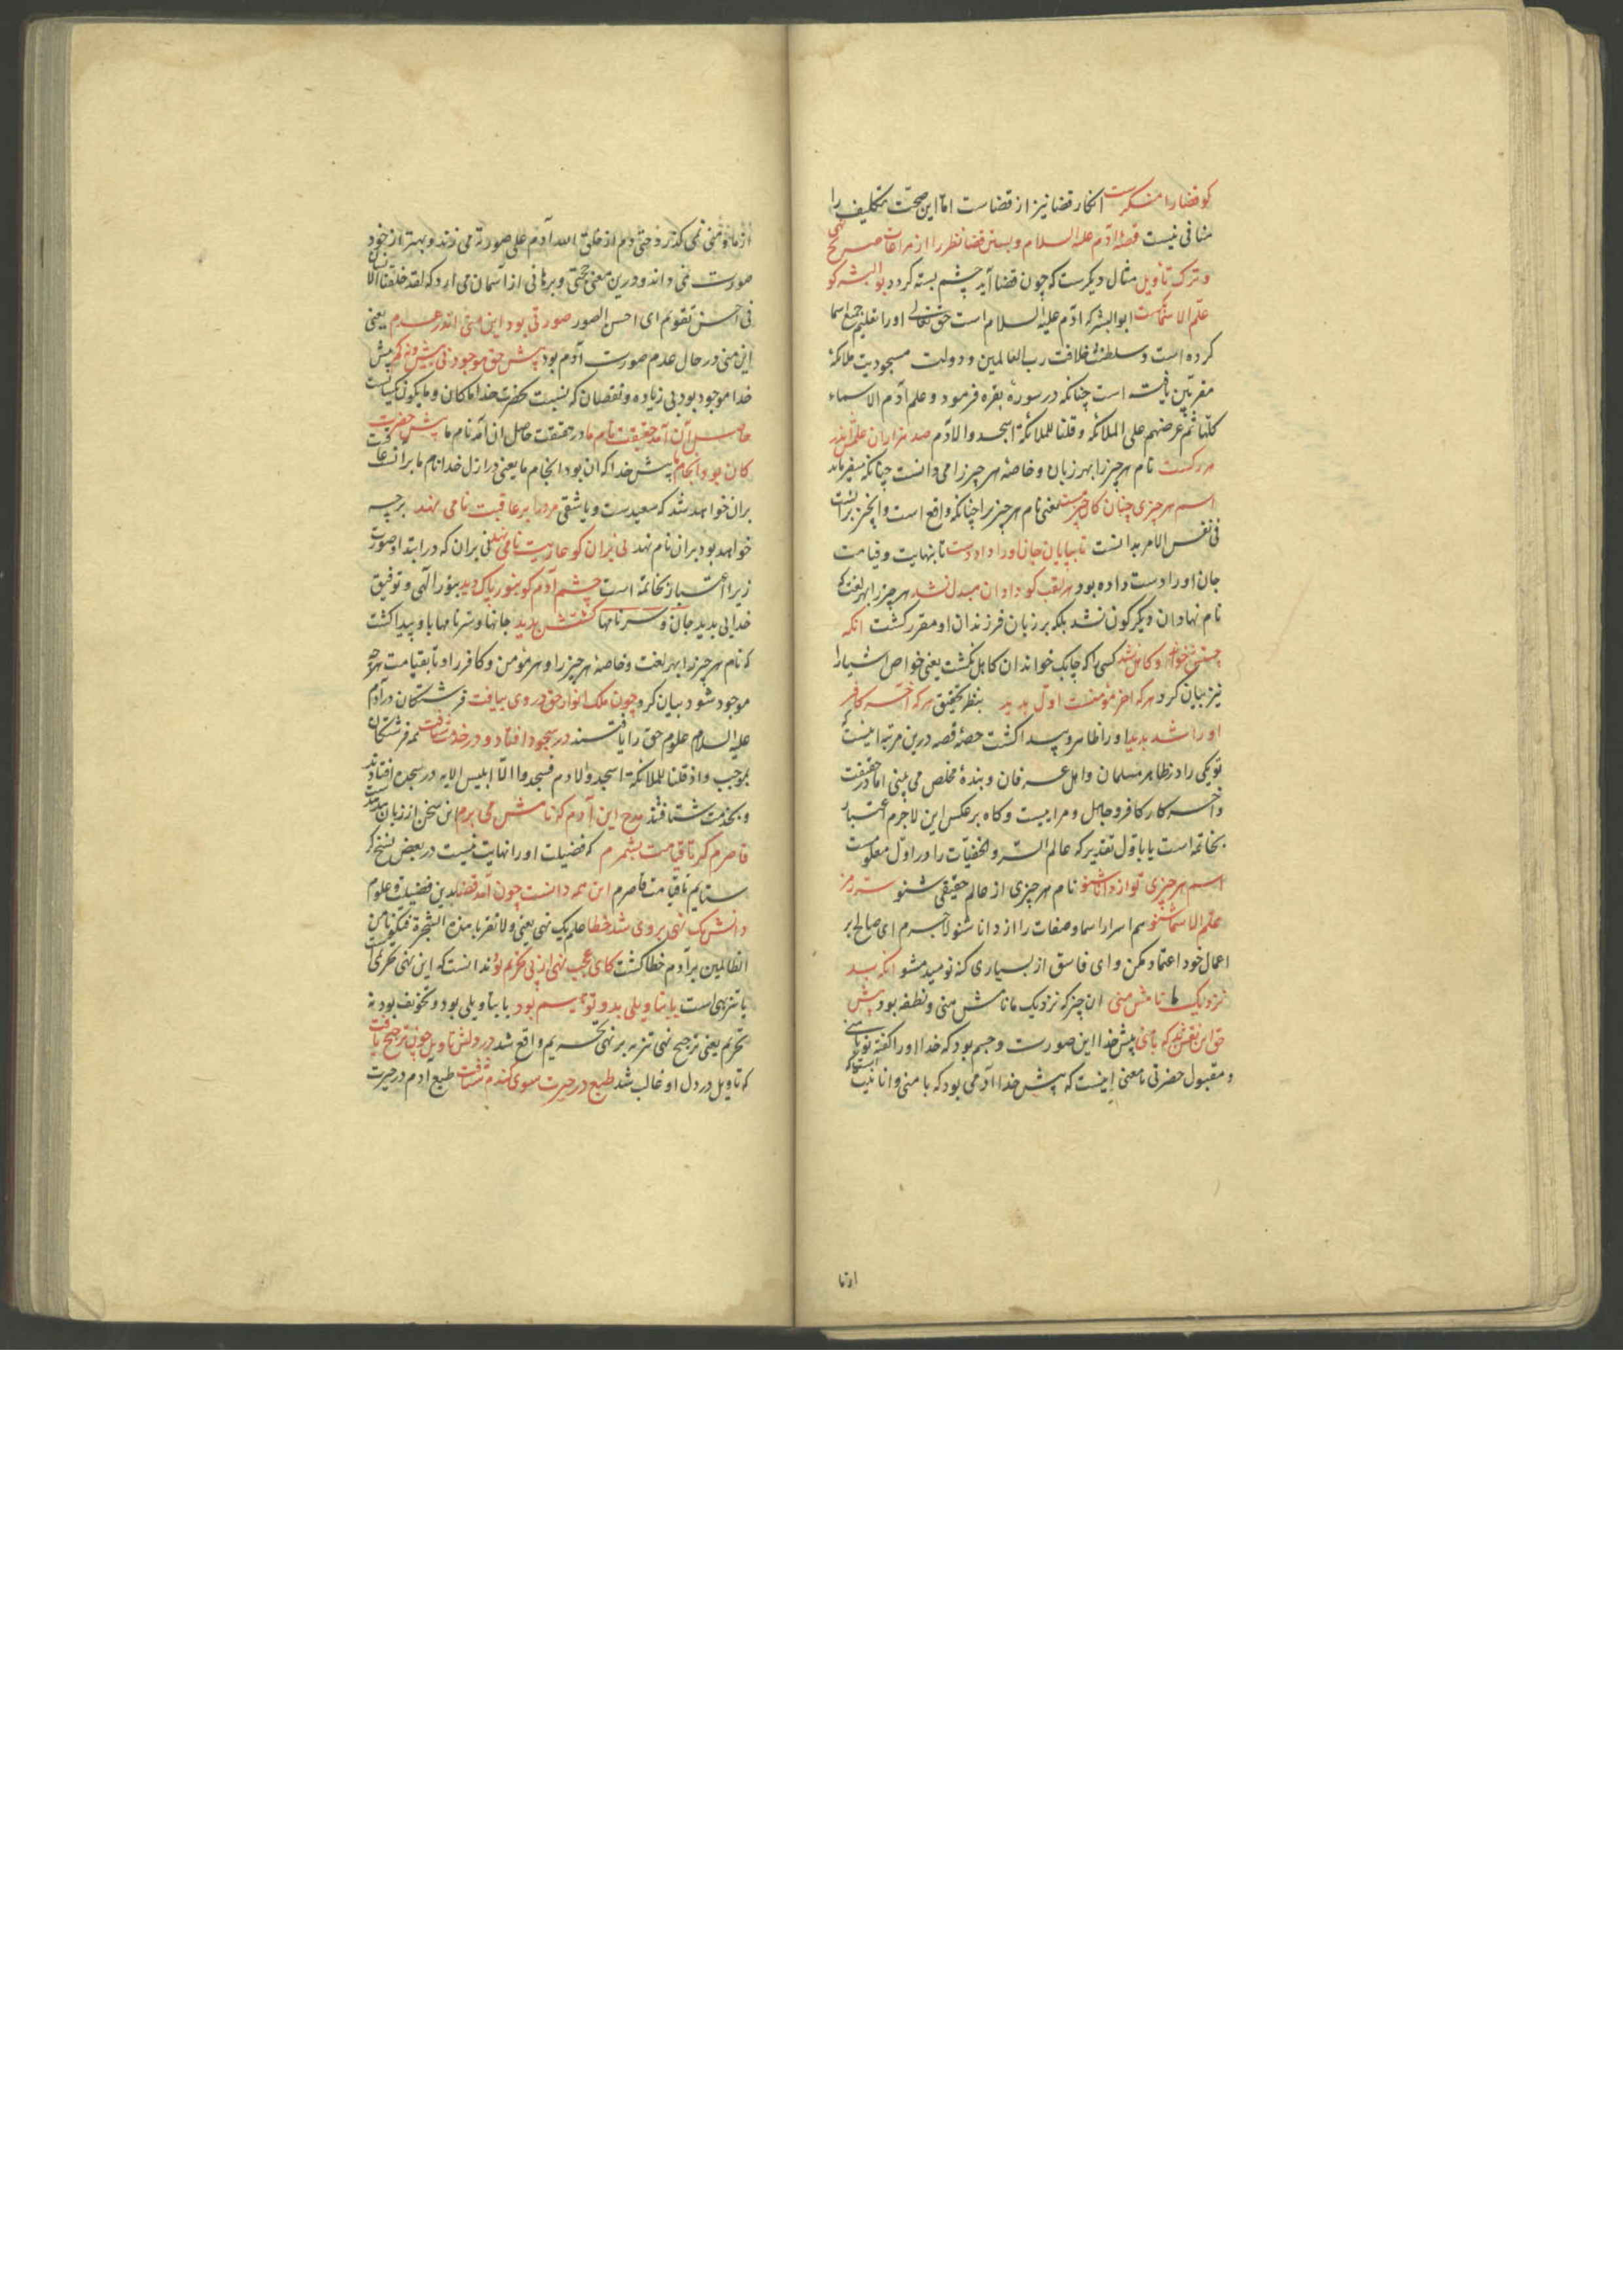 کو قضا را منکرست انکار قضا نیز از قضاست اما این صحت تکلیف را
منافی نیست قصهٔ آدم علیه السلام و بستن قضا نظر را از مراعات صریح نهی
و ترک تاویل مثال دیگرست که چون قضا آید چشم بسته گردد بوالبشر کو
علم الاسماست ابوالبشر که آدم علیه السلام است حق تعالی او را تعلیم جمیع اسما
کرده است و سلطنت خلافت رب العالمین و دولت مسجودیت ملائکهٔ
مقربین یافته است چنانکه در سورهٔ بقره فرمود و علم آدم الاسماء
کلها ثم عرضهم علی الملائکه و قلنا للملائکة اسجدوا لادم صد هزاران علمش اندر
هر رگست نام هر چیز را بهر زبان و خاصهٔ هر چیز را می دانست چنانکه میفرماید
اسم هر چیزی چنان کان چیز هست یعنی نام هر چیز را چنانکه واقع است و آن چیز بر آنست
فی نفس الامر بدانست تا بپایان جان او را داد دست تا بنهایت و قیامت
جان او را دست داده بود هر لقب کو داد آن مبدل نشد هر چیز را بهر لغت که
نام نهاد آن دیگرگون نشد بلکه بر زبان فرزندان او مقرر گشت آنکه
چستش خواند او کاهل نشد کسی را که چابک خواند آن کاهل نگشت یعنی خواص اشیا را
نیز بیان کرد هر که آخر مؤمنست اول بدید بنظر تحقیق هر که آخر کافر
او را شد پدید او را ظاهر و پیدا گشت حصهٔ قصه درین مرتبه اینست که
تو یکی را در ظاهر مسلمان و اهل عرفان و بندهٔ مخلص می بینی اما در حقیقت
و آخر کار کافر و جاهل و مراییست و گاه بر عکس این لاجرم اعتبار
بخاتمه است یا باول تقدیر که عالم السر و الخفیات را در اول معلومست
اسم هر چیزی تو از دانا شنو نام هر چیزی از عالم حقیقی شنو سر رمز
علم الاسما شنو هم اسرار اسما و صفات را از دانا شنو لاجرم ای صالح بر
اعمال خود اعتماد مکن و ای فاسق از بسیاری گنه نومید مشو آنکه بد
نزدیک ما نامش منی آن چیز که نزدیک ما نامش منی و نطفه بود پیش
حق این نقش بد که با منی پیش خدا این صورت و جسم بود که خدا او را گفته تو با منی
و مقبول حضرتی یا معنی اینست که پیش خدا آدمی بود که با منی و انانیت
از ما و منی نمی گذرد حتی دم از خلق الله آدم علی صورته می زند و بهتر از خود
صورت نمی داند و درین معنی حجتی و برهانی از آسمان می آرد که لقد خلقنا الانسان
فی احسن تقویم ای احسن الصور صورتی بود این منی اندر عدم یعنی
این منی در حال عدم صورت آدم بود پیش حق موجود نی بیش و نه کم پیش
خدا موجود بود بی زیاده و نقصان که نسبت بحضرت خدا ما کان و ما یکون یکیست
حاصل آن آمد حقیقت نام ما در حقیقت حاصل آن آمد نام ما پیش حضرت
کان بود انجام ما پیش خدا که آن بود انجام ما یعنی در ازل خدا نام ما بر آنست عاقبت
بران خواهد شد که سعیدست و یا شقی مرد را بر عاقبت نامی نهد بر چه
خواهد بود بران نام نهد نی بران کو عاریت نامی نهد نی بران که در ابتدا و صورت
زیرا اعتبار بخاتمه است چشم آدم کو بنور پاک دید بنور الهی و توفیق
خدایی بدید جان و سر نامها گشتش پدید جانها و سر نامها باو پیدا گشت
که نام هر چیز را بهر لغت و خاصهٔ هر چیز را و هر مؤمن و کافر را و تا بقیامت هر چه
موجود شود بیان کرد چون ملک انوار حق در وی بیافت فرشتگان در آدم
علیه السلام علوم حق را یافتند در سجود افتاد و در خدمت شتافت همه فرشتگان
بموجب و اذ قلنا للملائکة اسجدوا لادم فسجدوا الا ابلیس الایه در سجده افتادند
و بخدمت شتافتند مدح این آدم که نامش می برم این سخن از زبان
قاصرم گر تا قیامت بشمرم که فضیلت او را نهایت نیست در بعض نسخ گر
ستایم تا قیامت قاصرم این همه دانست چون آمد قضا بدین فضیلت و علوم
دانش یک نهی بر وی شد خطا علم یک نهی یعنی و لا تقربا هذه الشجرة فتکونا من
الظالمین بر آدم خطا گشت کای عجب نهی از پی تحریم بود ندانست که این نهی تحریمی است
یا تنزیهی است یا بتاویلی بد و توهیم بود یا بتاویلی بود و تخویف بود نه
تحریم یعنی ترجیح نهی تنزیه بر نهی تحریم واقع شد در دلش تاویل چون ترجیح یافت
که تاویل در دل او غالب شد طبع در حیرت سوی گندم شتافت طبع آدم در حیرت